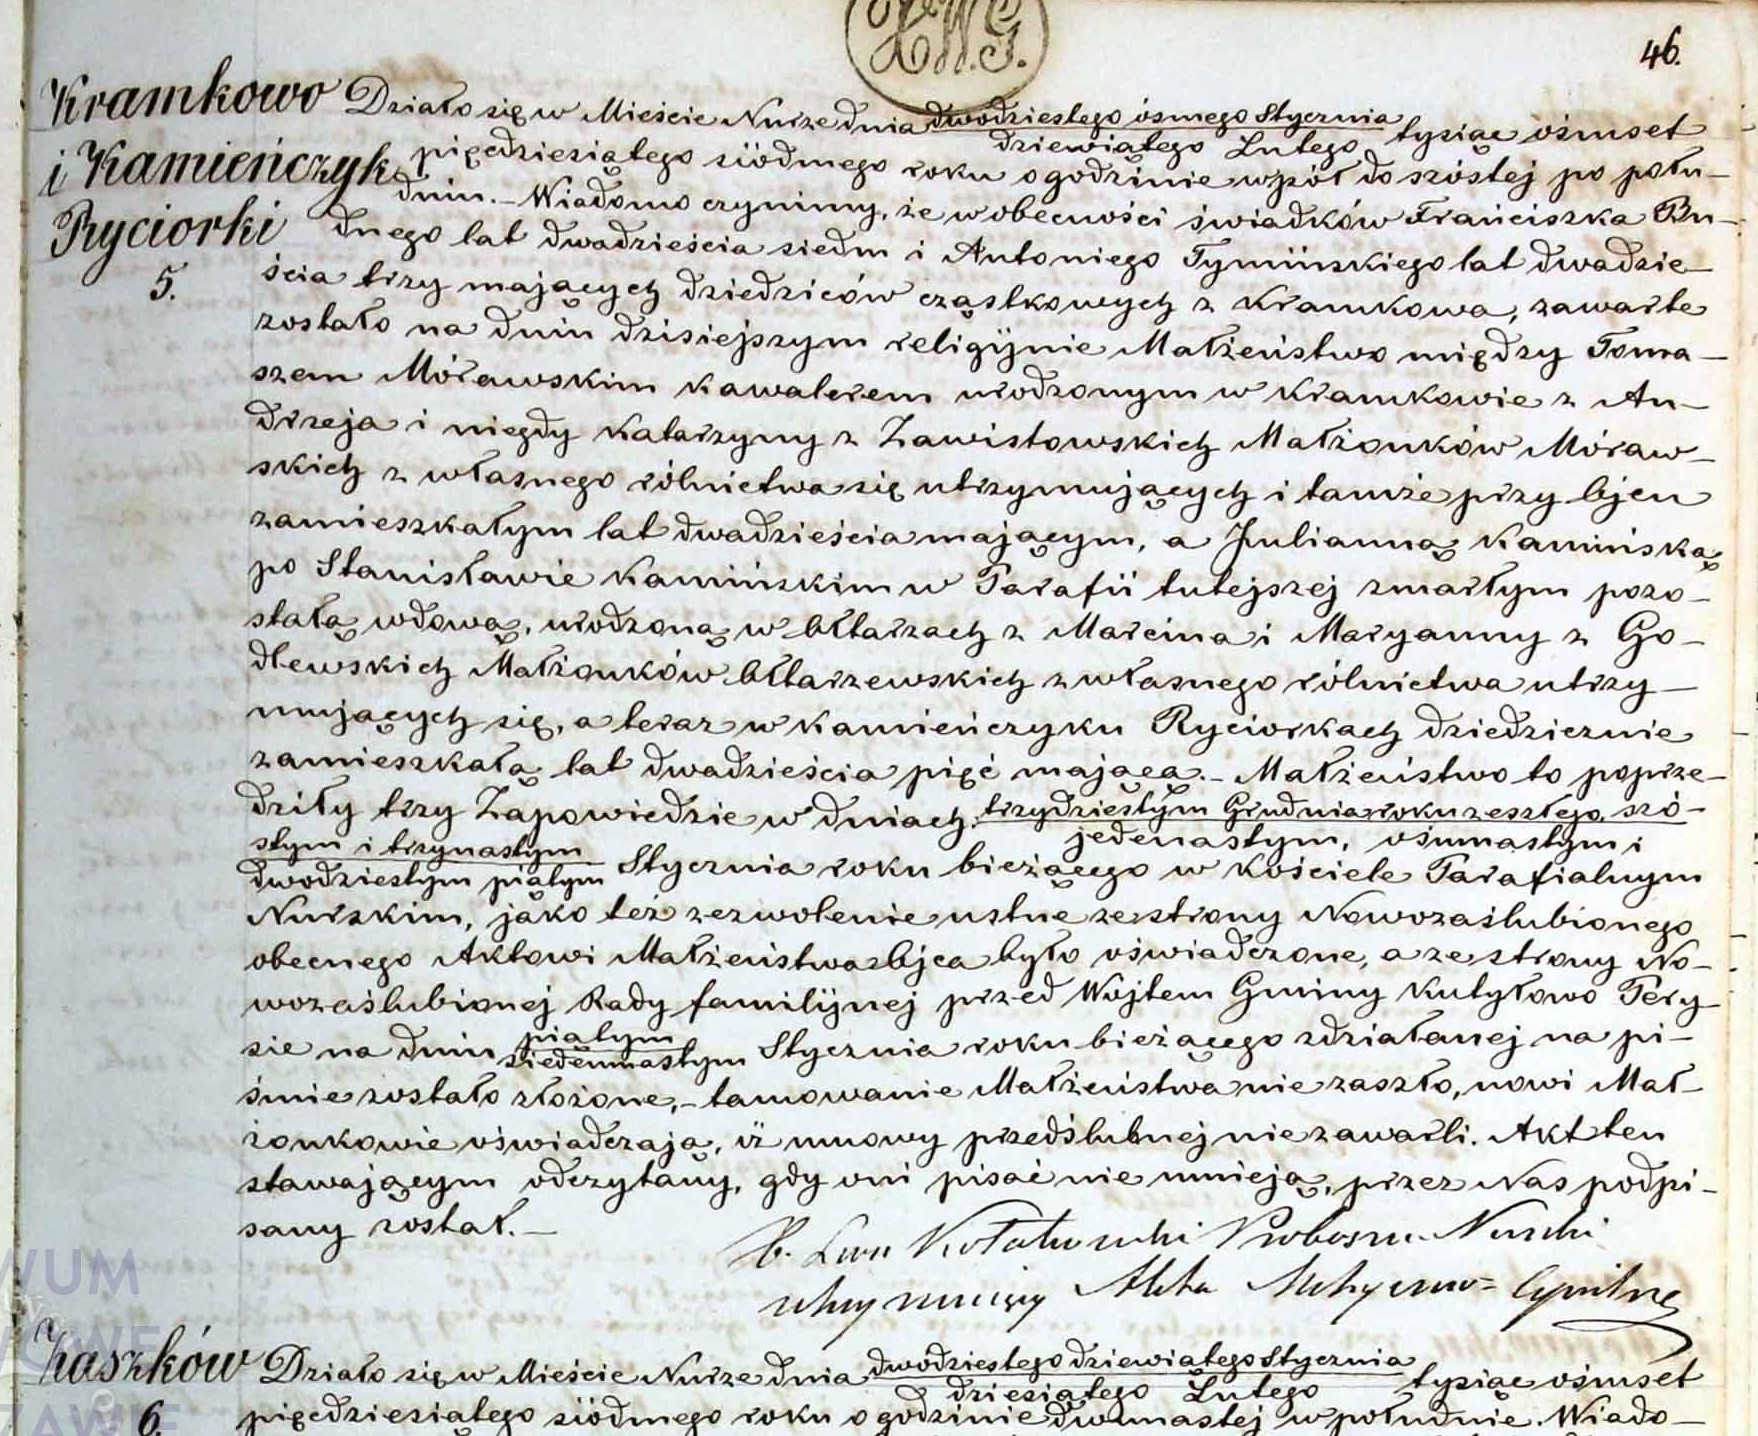 46.
Kramkowo
i Kamieńczyk
Ryciorki
5.
Działo się w Mieście Nurze dnia dwódziestego ósmego Stycznia / dziewiątego Lutego tysiąc ośmset
pięćdziesiątego siódmego roku o godzinie wpół do szóstej po połu-
dniu. – Wiadomo czynimy, że w obecności świadków Franciszka Bu-
dnego lat dwadzieścia siedm i Antoniego Tymińskiego lat dwadzie-
ścia trzy mających dziedziców cząstkowych z Kramkowa, zawarte
zostało na dniu dzisiejszym religijnie Małżeństwo między Toma-
szem Mórawskim kawalerem urodzonym w Kramkowie z An-
drzeja i niegdy Katarzyny z Zawistowskich Małżonków Móraw-
skich z własnego rólnictwa się utrzymujących i tamże przy Ojcu
zamieszkałym lat dwadzieścia mającym, a Julianną Kamińską
po Stanisławie Kamińskim w Parafii tutejszej zmarłym pozo-
stałą wdową, urodzoną w Ołtarzach z Marcina i Maryanny z Go-
dlewskich Małżonków Ołtarzewskich z własnego rólnictwa utrzy-
mujących się, a teraz w Kamieńczyku Ryciorkach dziedzicznie
zamieszkałą lat dwadzieścia pięć mającą. – Małżeństwo to poprze-
dziły trzy Zapowiedzie w dniach: trzydziestym Grudnia roku zeszłego, szó-
stym i trzynastym / jedenastym, ośmnastym i
dwódziestym piątym Stycznia roku bieżącego w Kościele Parafialnym
Nurskim, jako też zezwolenie ustne ze strony Nowozaślubionego
obecnego Aktowi Małżeństwa Ojca było oświadczone, a ze strony No-
wozaślubionej Rady familijnej przed Wójtem Gminy Kutyłowo Pery-
sie na dniu piątym / siedemnastym Stycznia roku bieżącego zdziałanej na pi-
śmie zostało złożone, – tamowanie Małżeństwa nie zaszło, nowi Mał-
żonkowie oświadczają, iż umowy przedślubnej nie zawarli. Akt ten
stawającym odczytany, gdy oni pisać nie umieją, przez Nas podpi-
sany został. –
X. Proboszcz Nurski
utrzymujący Akta Cywilne
Zaszków
6.
Działo się w Mieście Nurze dnia dwódziestego dziewiątego Stycznia / dziesiątego Lutego tysiąc ośmset
pięćdziesiątego siódmego roku o godzinie dwunastej w południe. Wiado-